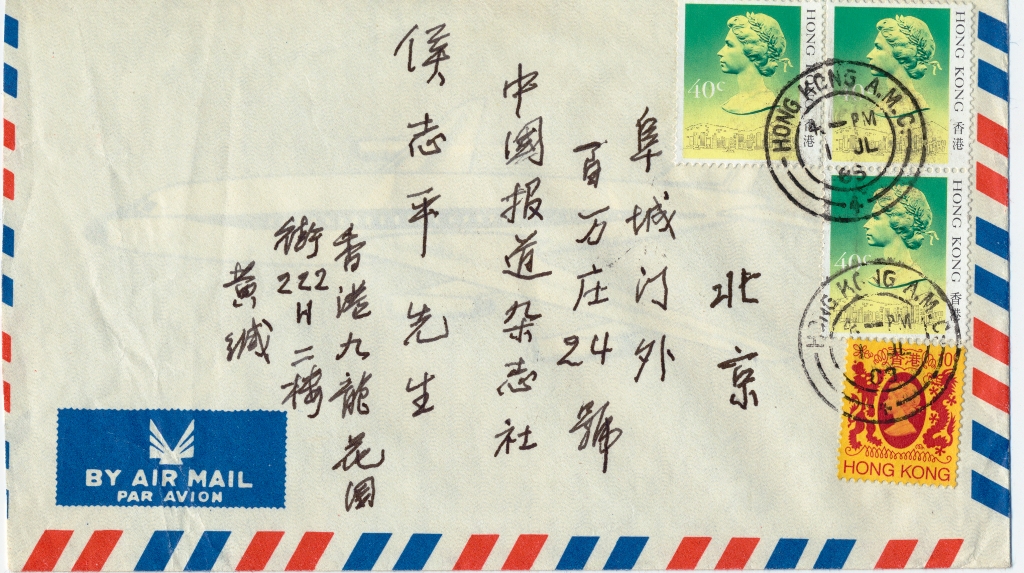 北京
阜城门外
百万庄24號
中國报道杂志社
侯志平先生
香港九龍花園
街222H二楼
黄缄
BY AIR MAIL
PAR AVION
40c
HONG KONG 香港
HONG KONG 香港
40c
HONG KONG 香港
香港
HONG KONG
HONG KONG A.M.C.
4 — PM
1 JL
HONG KONG A.M.C.
4 — PM